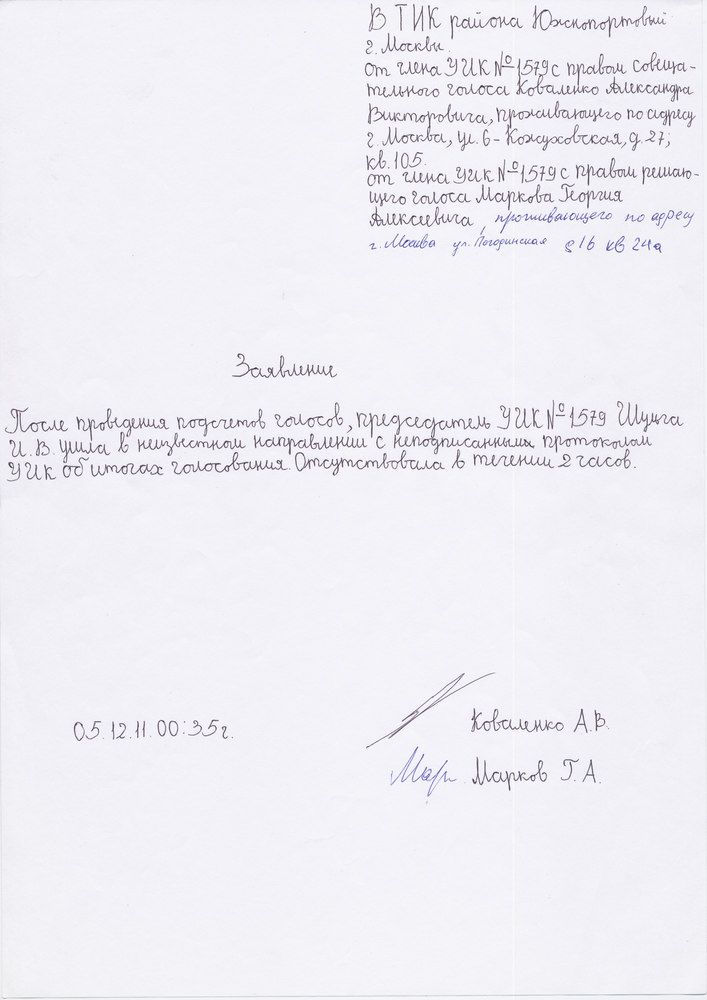 В ТИК района Южнопортовый
г. Москвы.
от члена УИК №1579 с правом совеща-
тельного голоса Коваленко Александра
Викторовича, проживающего по адресу
г. Москва, ул. 6-Кожуховская, д. 27,
кв. 105.
от члена УИК №1579 с правом решаю-
щего голоса Маркова Георгия
Алексеевича, проживающего по адресу
г. Москва ул. Погодинская д 16 кв 24а
Заявление
После проведения подсчетов голосов, председатель УИК №1579 Шульга
И. В. ушла в неизвестном направлении с неподписанным протоколом
УИК об итогах голосования. Отсутствовала в течении 2 часов.
05.12.11. 00:35г.
Коваленко А.В.
Марк Марков Г.А.